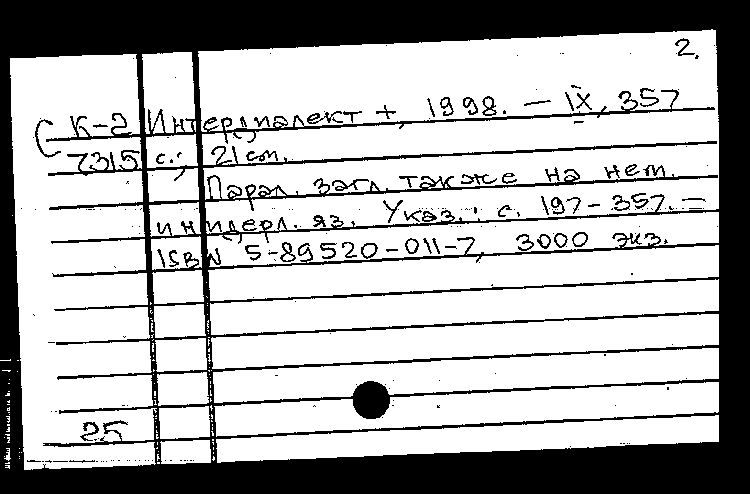 2.
К-2 Интердиалект +, 1998. — IX, 357
7315 с.; 21 cm.
Парал. загл. также на нем.
и нидерл. яз. Указ.: с. 197-357. =
ISBN 5-89520-011-7, 3000 экз.
25